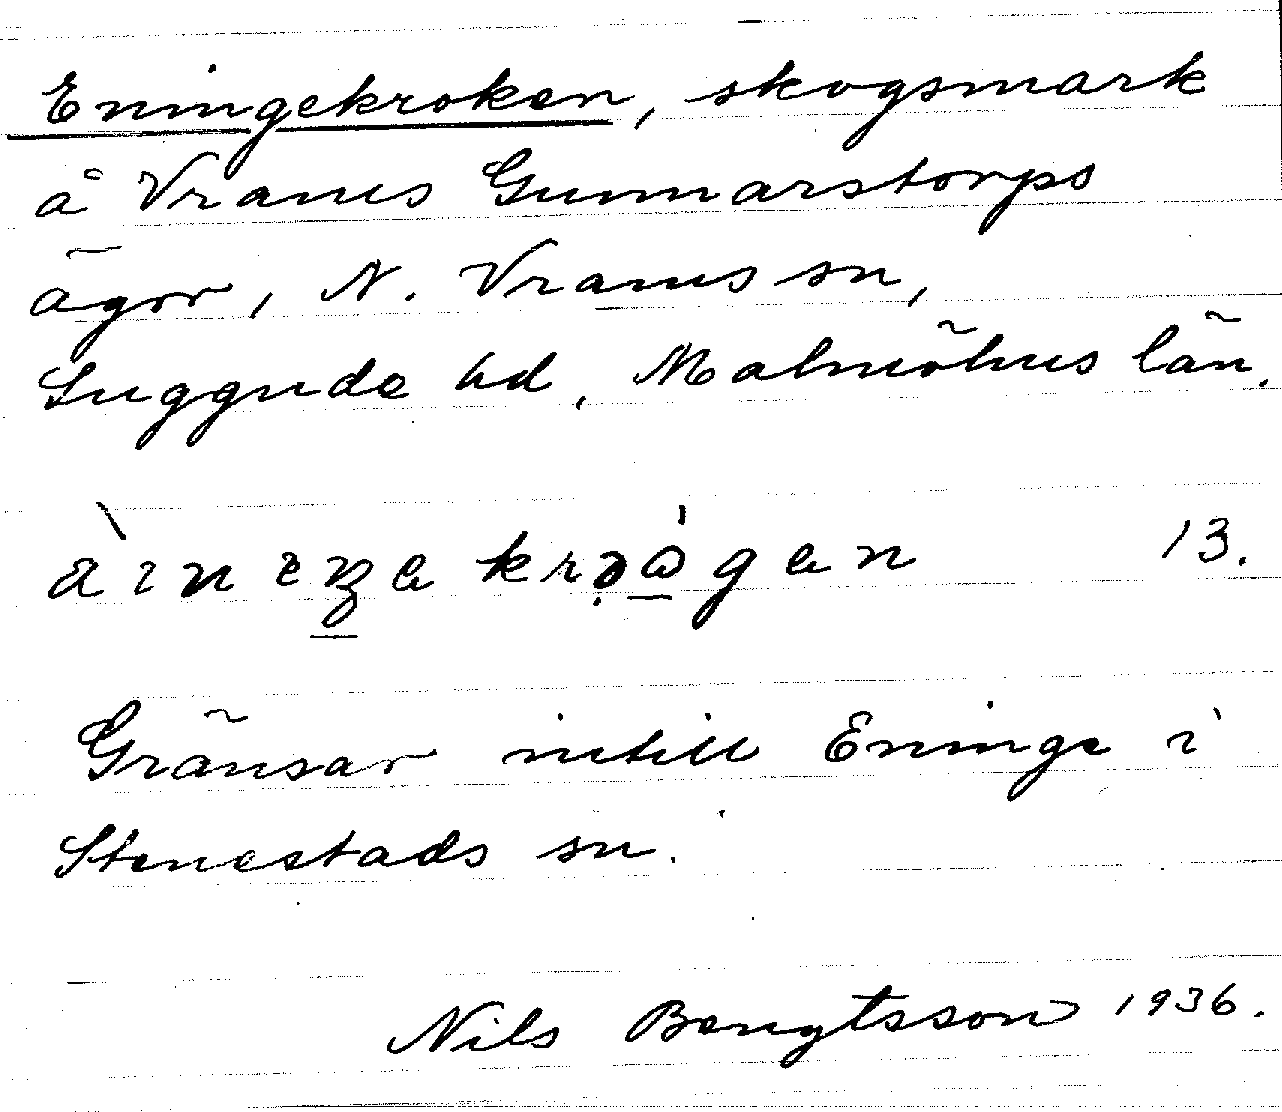 Eningekroken, skogsmark
å Vrams Gunnarstorps
ägor, N. Vrams sn,
Luggude hd, Malmöhus län.
13.
Gränsar intill Eninge i
Stenestads sn.
Nils Bengtsson 1936.